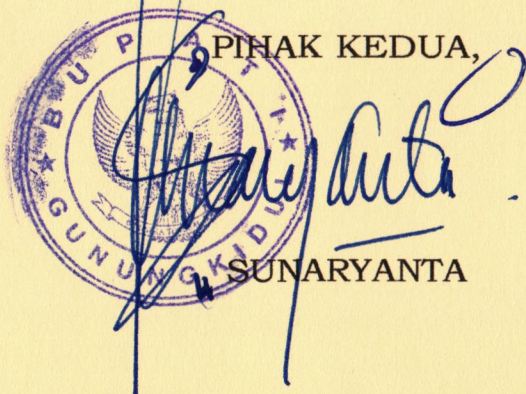 PIHAK KEDUA,
BUPATI
GUNUNGKIDUL
SUNARYANTA